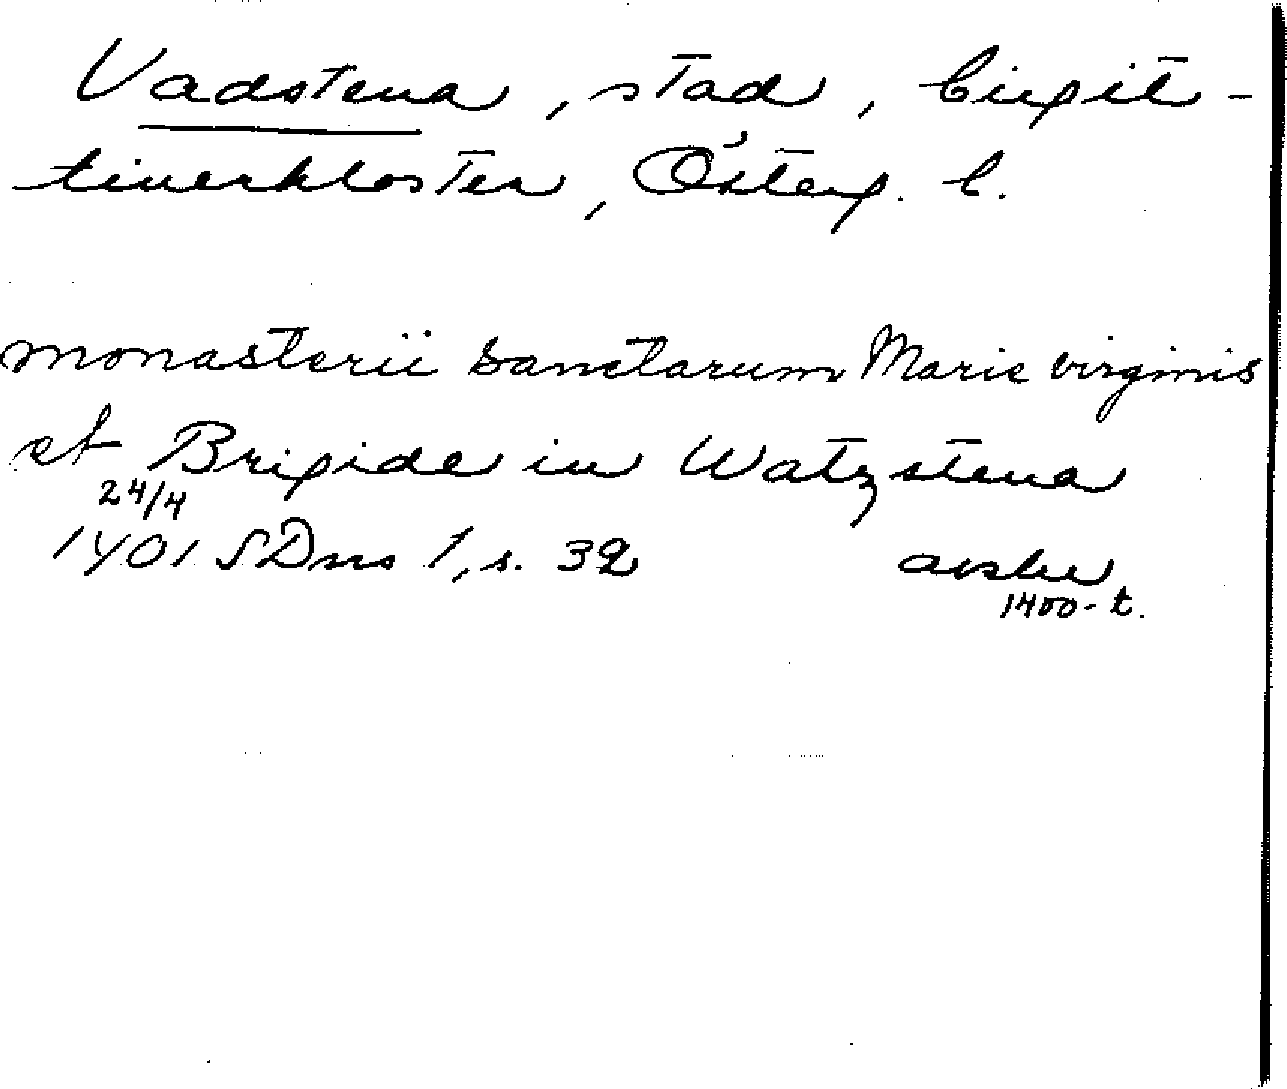 Vadstena, stad, birgit-
tinerkloster, Österg. l.
monasterii sanctarum Marie virginis
et Brigide in Watzstena
24/4
1401 SDns 1, s. 32 avskr
1400-t.